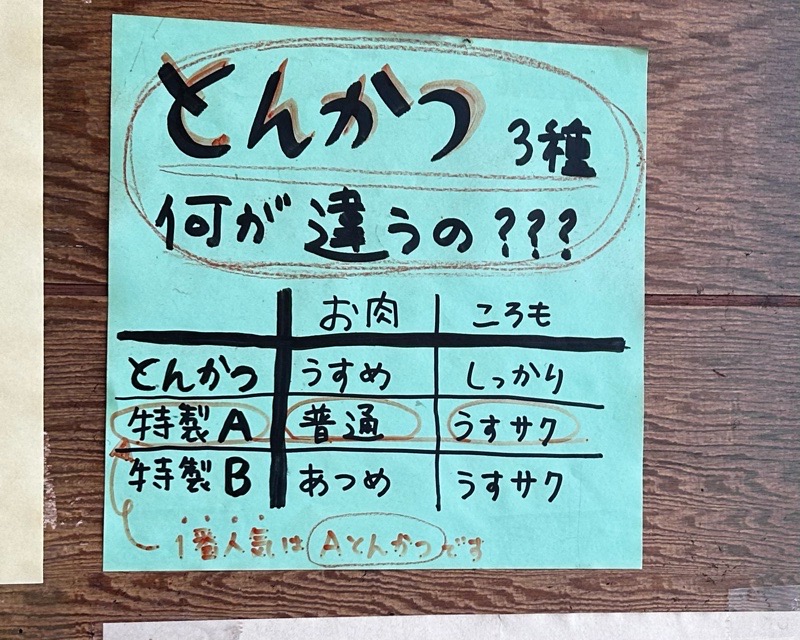 とんかつ 3種
何が違うの???
お肉 ころも
とんかつ うすめ しっかり
特製A 普通 うすサク
特製B あつめ うすサク
1番人気はAとんかつです